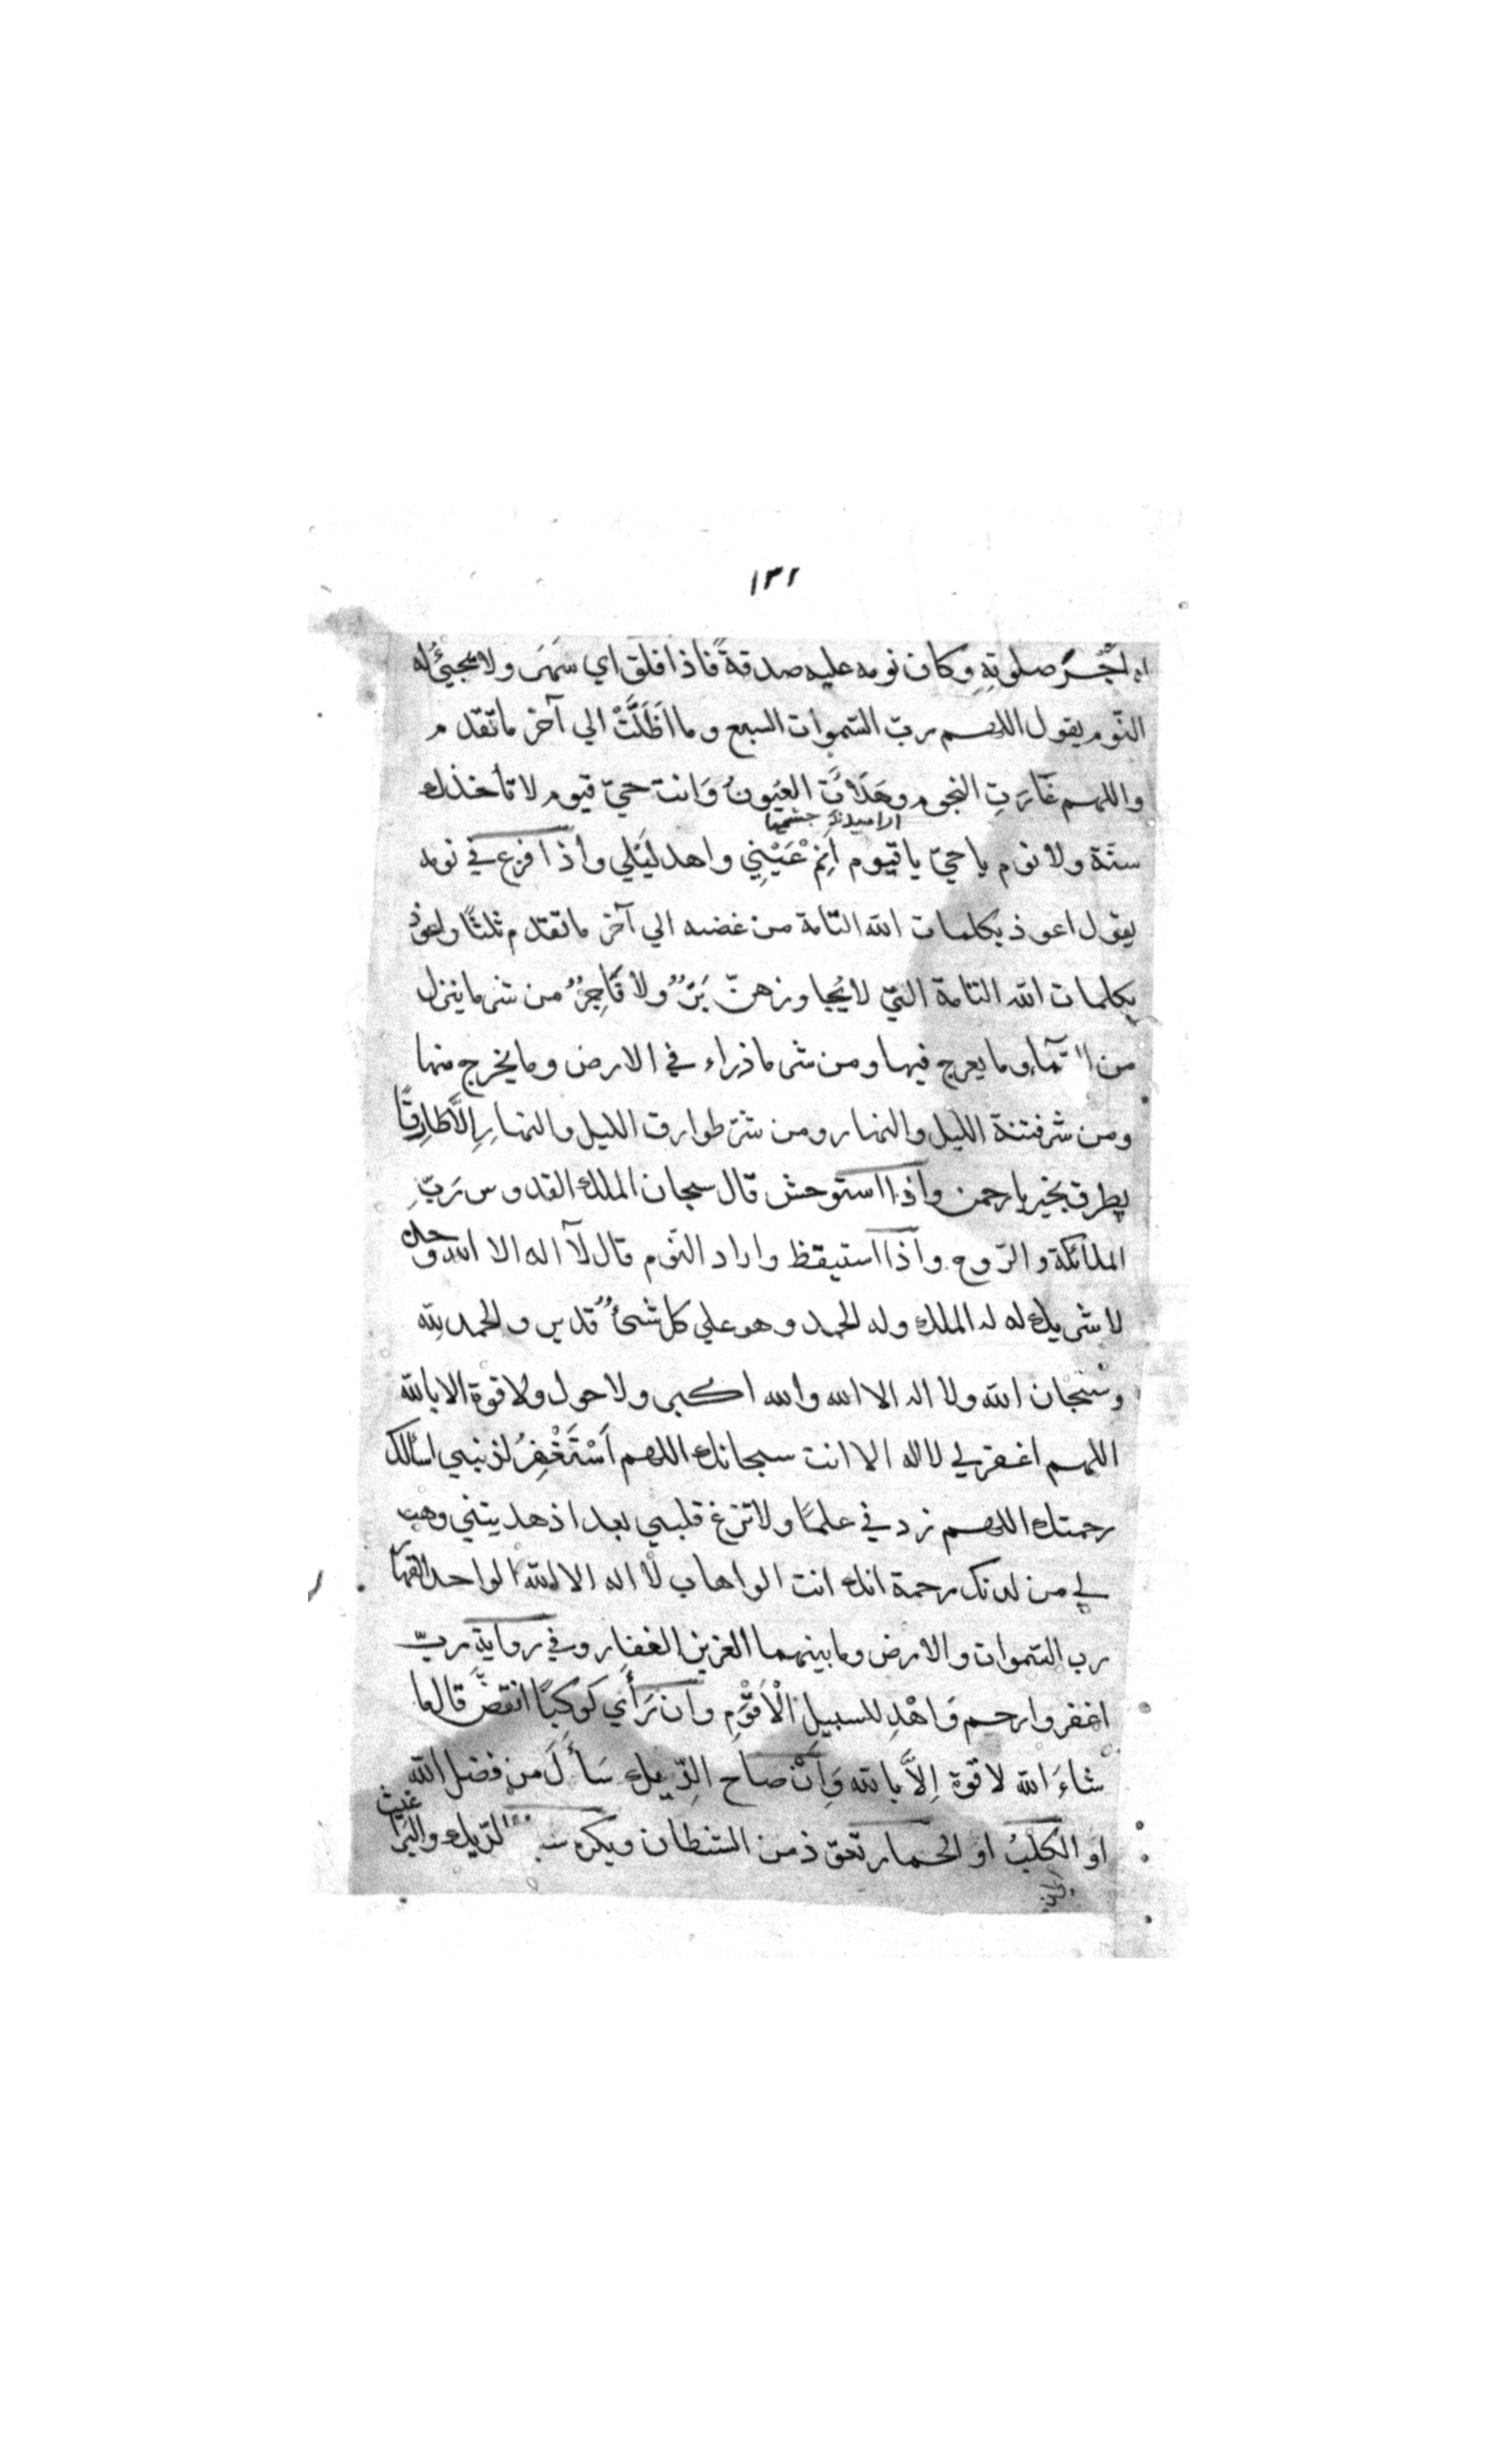 ١٣٢
له اَجْرُ صلوتِهِ وكان نومه عليه صدقةً فاذا قلق اي سَهَرَ ولا يجيئُ له
النّوم يقول اللهم ربّ السّموات السبع وما اَظَلَّتْ الي آخر ما تقدم
واللهم غَارَتِ النجوم وهَدَأتِ العُيونُ وَانت حيّ قيوم لا تأخذك
سنَة ولا نوم يا حيّ يا قيوم اَنِمْ عَيْنِي واهد لَيْلي واذا فزع في نومه
يقول اعوذ بكلمات الله التّامة من غضبه الي آخر ما تقدم ثلثًا واعوذ
بكلمات الله التامة التّي لا يُجاوزهنّ بَرٌّ ولا فَاجِرٌ من شر ما ينزل
من السّمآء وما يعرج فيها ومن شر ما ذراء في الارض وما يخرج منها
ومن شر فتنة الليل والنهار ومن شرّ طوارق الليل والنهارِ اِلاَّ طارِقًا
يطرق بخير يا رحمن واذا استوحش قال سبحان الملك القدوس رَبِّ
الملآئكة والرّوح واذا استيقظ واراد النّوم قال لآ اله الا الله وحده
لا شريك له له الملك وله الحمد وهو علي كل شئٍ قدير والحمد لِلّه
وسُبْحان الله ولا اله الا الله والله اكبر ولا حول ولا قوة الا بالله
اللهم اغفر لي لا اله الا انت سبحانك اللهم اَسْتَغْفِرُ لذنبي اسألك
رحمتك اللهم زدني علمًا ولا تزغ قلبي بعد اذ هديتني وهب
لي من لدنك رحمة انك انت الوهاب لا اله الا الله الواحد القهّار
رب السّموات والارض وما بينهما العزيز الغفار وفي رواية ربّ
اغفر وارحم وَاهْدِ للسبيل الْاَقْوَمِ وان رَأَي كوكبًا انقضّ قال ما
شاءَ الله لا قوة اِلاَّ بالله وَاِنْ صاح الدِّيك سَأَلَ من فضل الله
او الكلبُ او الحمار تعوّذ من الشيطان ويكره سب الدّيك والبَرَاغيث